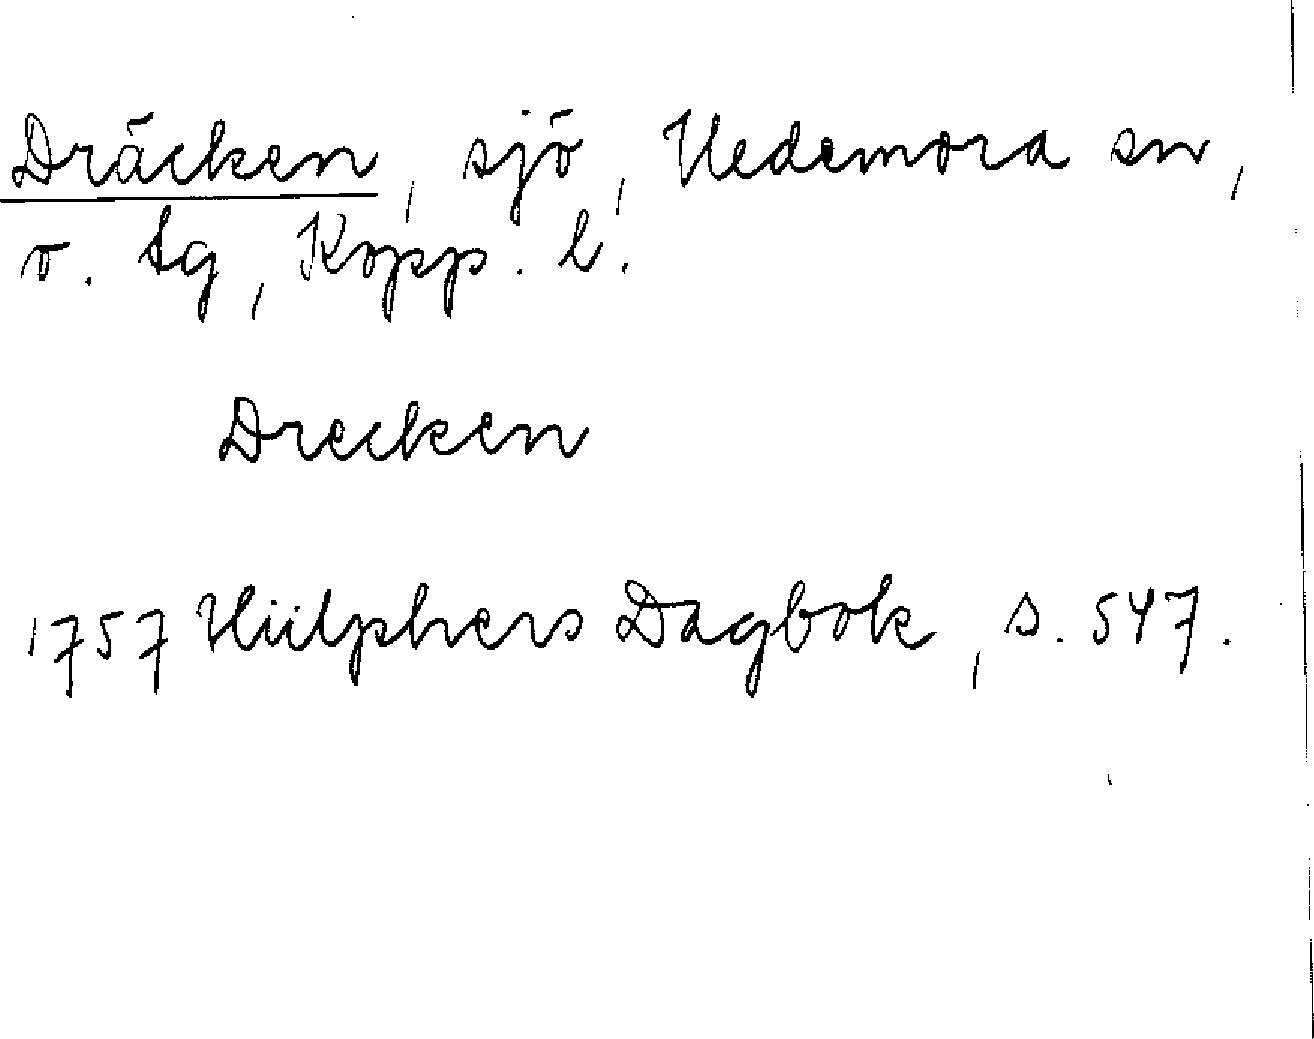 Dräcken, sjö, Hedemora sn,
o. tg, Kopp. l.
Drecken
1757 Hülphers Dagbok, s. 547.